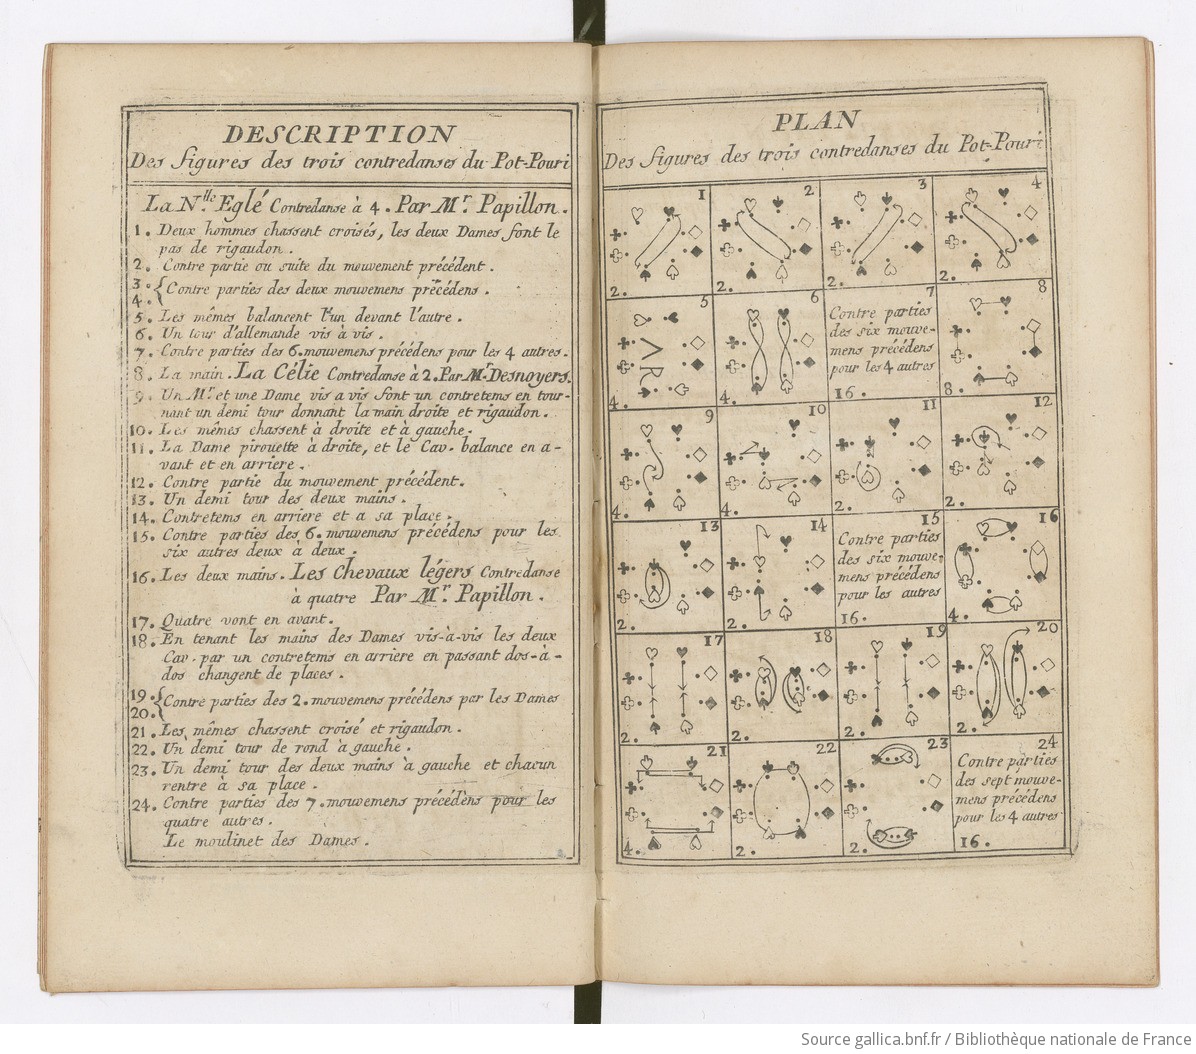 DESCRIPTION
Des figures des trois contredanses du Pot-Pouri
La N.lle Eglé Contredanse à 4. Par Mr. Papillon.
1. Deux hommes chassent croisés, les deux Dames font le
pas de rigaudon.
2. Contre partie ou suite du mouvement précédent.
3. Contre parties des deux mouvemens précédens.
4.
5. Les mêmes balancent l'un devant l'autre.
6. Un tour d'allemande vis à vis.
7. Contre parties des 6. mouvemens précédens pour les 4 autres.
8. La main. La Célie Contredanse à 2. Par Mr. Desnoyers.
9. Un Mr. et une Dame vis a vis font un contretems en tour-
nant un demi tour donnant la main droite et rigaudon.
10. Les mêmes chassent à droite et à gauche.
11. La Dame pirouette à droite, et le Cav. balance en a-
vant et en arriere.
12. Contre partie du mouvement précédent.
13. Un demi tour des deux mains.
14. Contretems en arriere et a sa place.
15. Contre parties des 6. mouvemens précédens pour les
six autres deux à deux.
16. Les deux mains. Les Chevaux légers Contredanse
à quatre Par Mr. Papillon.
17. Quatre vont en avant.
18. En tenant les mains des Dames vis-à-vis les deux
Cav. par un contretems en arriere en passant dos-à-
dos changent de places.
19. Contre parties des 2. mouvemens précédens par les Dames
20.
21. Les mêmes chassent croisé et rigaudon.
22. Un demi tour de rond à gauche.
23. Un demi tour des deux mains à gauche et chacun
rentre à sa place.
24. Contre parties des 7. mouvemens précédens pour les
quatre autres.
Le moulinet des Dames.
PLAN
Des figures des trois contredanses du Pot-Pouri
1
2.
2
2.
3
2.
4
2.
5
4.
6
4.
7
Contre parties
des six mouve-
mens précédens
pour les 4 autres
16.
8
8.
9
4.
10
4.
11
2.
12
2.
13
2.
14
2.
15
Contre parties
des six mouve-
mens précédens
pour les autres
16.
16
4.
17
2.
18
2.
19
2.
20
2.
21
4.
22
2.
23
2.
24
Contre parties
des sept mouve-
mens précédens
pour les 4 autres
16.
Source gallica.bnf.fr / Bibliothèque nationale de France